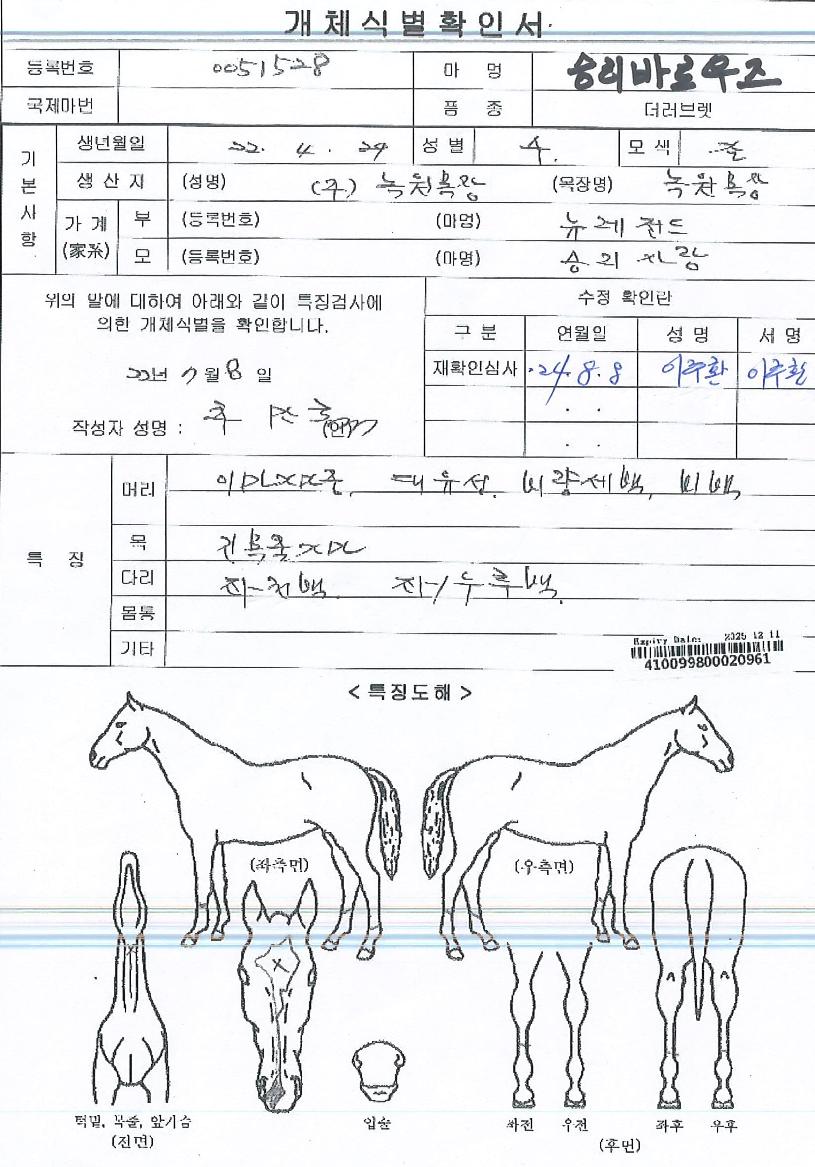 개체식별확인서
등록번호 0051528 마 명 승리바로우즈
국제마번 품 종 더러브렛
기본사항
생년월일 22. 4. 29 성별 수. 모색
생산자 (성명) (주) 녹원목장 (목장명) 녹원목장
가계(家系) 부 (등록번호) (마명) 뉴레전드
모 (등록번호) (마명) 승리사랑
위의 말에 대하여 아래와 같이 특징검사에
의한 개체식별을 확인합니다.
22년 7월 8일
작성자 성명 :
수정 확인란
구 분 연월일 성 명 서 명
재확인심사 24. 8. 8 이주환 이주환
. .
. .
특 징
머리 비량세백, 비백
목
다리
몸통
기타
Expiry Date: 2025 12 11
410099800020961
< 특징도해 >
(좌측면) (우측면)
턱밑, 목줄, 앞가슴
(전면)
입술
좌전 우전 좌후 우후
(후면)